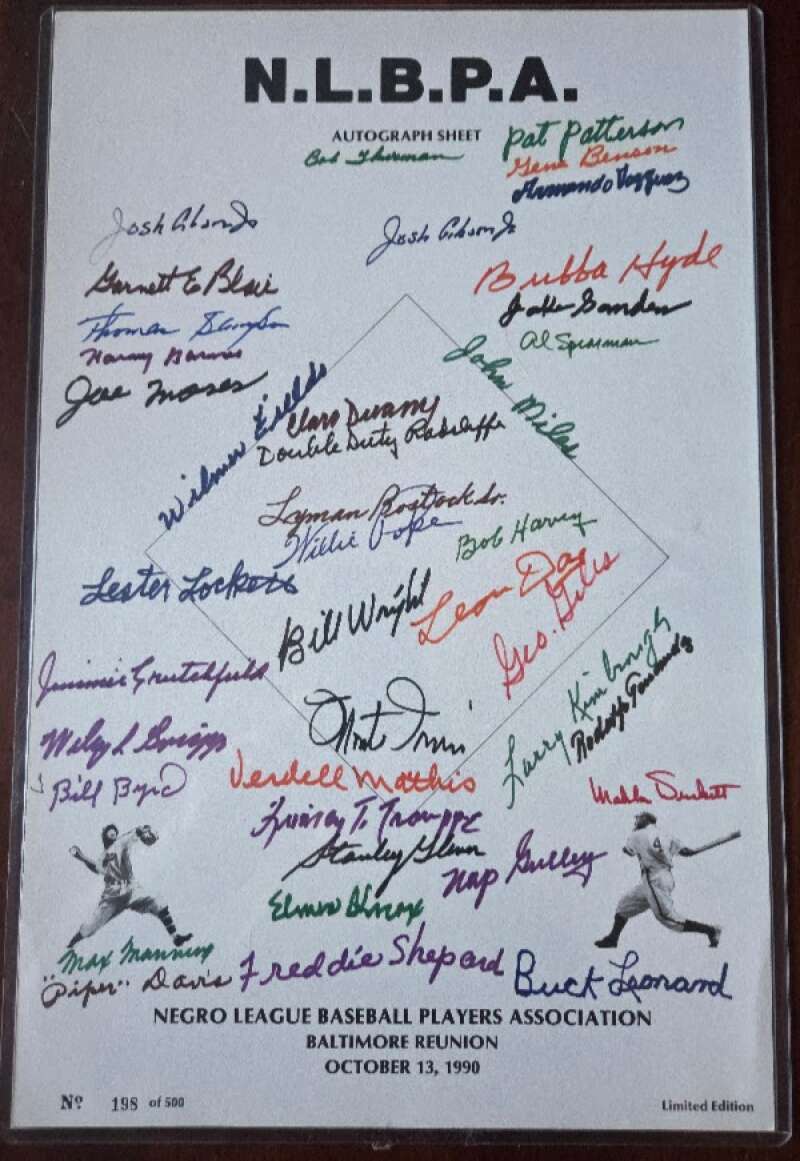 N.L.B.P.A.
AUTOGRAPH SHEET
Pat Patterson
Bob Thurman
Gene Benson
Armando Vazquez
Josh Gibson Jr
Josh Gibson Jr
Bubba Hyde
Garnett E Blair
Thomas Sampson
Harry Barnes
Al Spearman
Joe Moses
John Miles
Wilmer Fields
Claro Duany
Double Duty Radcliffe
Lyman Bostock Sr.
Willie Pope
Bob Harvey
Lester Lockett
Bill Wright
Leon Day
Geo. Giles
Jimmie Crutchfield
Larry Kimbrough
Rodolfo Fernandez
Monte Irvin
Wiley L Griggs
Bill Byrd
Verdell Mathis
Mahlon Duckett
Quincy T. Trouppe
Stanley Glenn
Nap Gulley
Elmer Knox
4
Max Manning
"Piper" Davis
Freddie Shepard
Buck Leonard
NEGRO LEAGUE BASEBALL PLAYERS ASSOCIATION
BALTIMORE REUNION
OCTOBER 13, 1990
Nº 198 of 500
Limited Edition